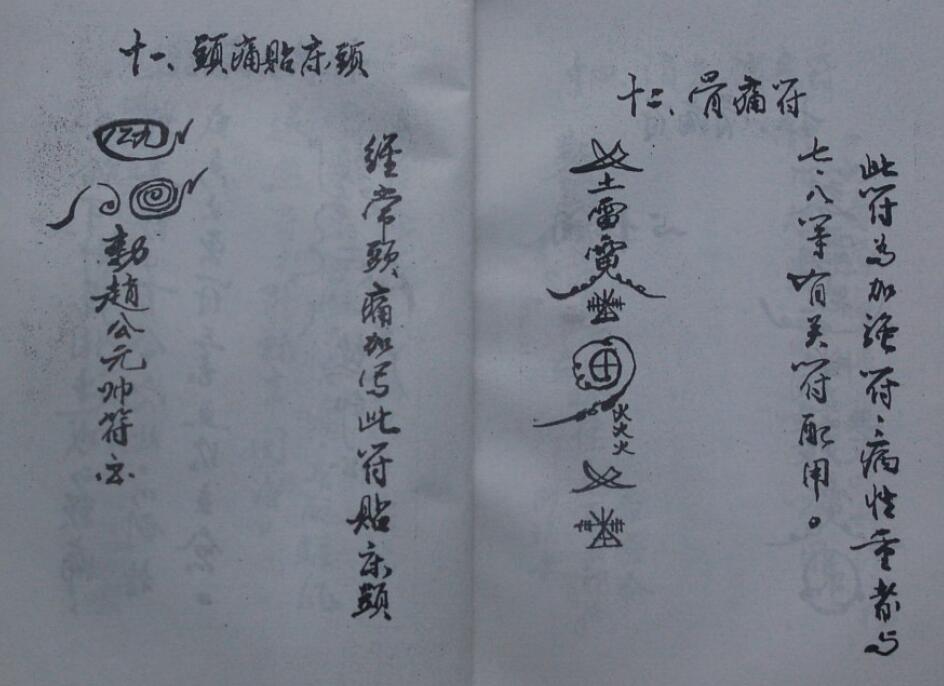 十一、頭痛貼床頭
經常頭痛加写此符貼床頭
勅趙公元帅符
十二、骨痛符
此符为加强符、病性重者与
七、八等有关符配用。
土雷
火火火